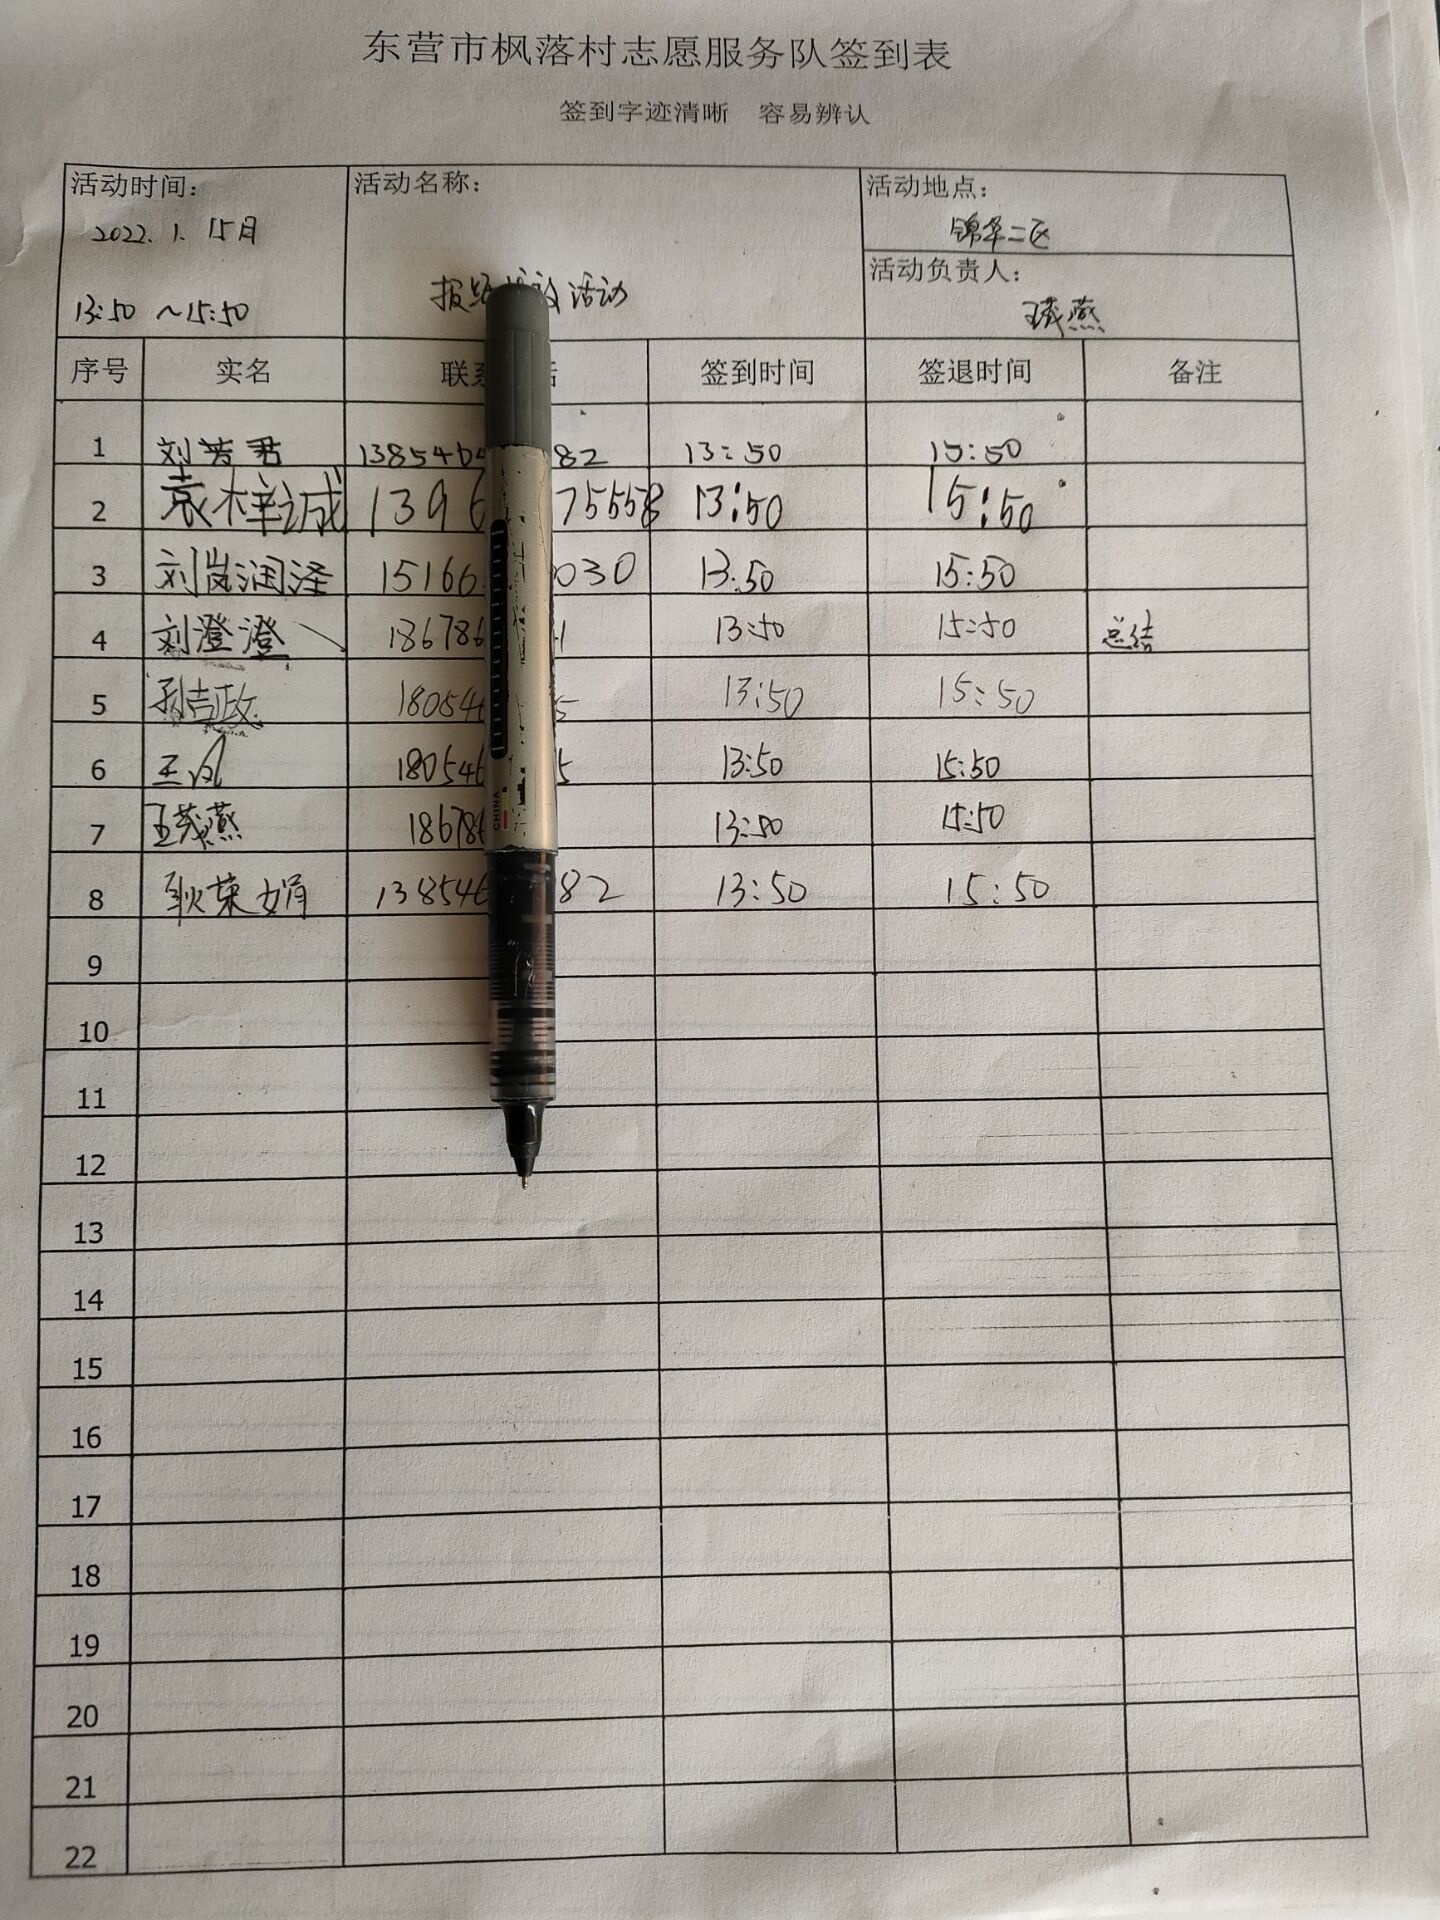 东营市枫落村志愿服务队签到表
签到字迹清晰 容易辨认
活动时间: 活动名称: 活动地点:
2022.1.15日 锦华二区
活动负责人:
13:50 ~15:50 活动 王茂燕
序号 实名 联系 话 签到时间 签退时间 备注
1 刘芳君 138546 82 13:50 15:50
2 袁梓诚 1396 75558 13:50 15:50
3 刘岚润泽 15166 030 13:50 15:50
4 刘澄澄 186786 1 13:50 15:50 总结
5 孙吉政 180546 5 13:50 15:50
6 王风 180546 5 13:50 15:50
7 王茂燕 186786 13:50 15:50
8 耿荣娟 138546 82 13:50 15:50
9
10
11
12
13
14
15
16
17
18
19
20
21
22
CHINA